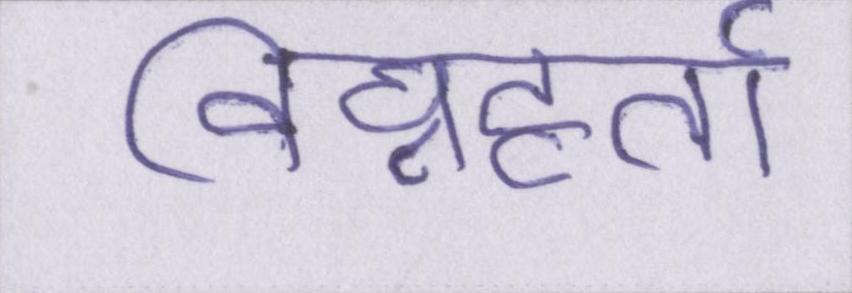 विघ्नहर्ता